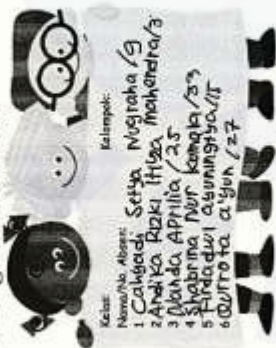 Kelas: Kelompok:
Nama/No Absen:
1 Cahyadi Setya Nugraha /9
2 Andika Rizki Ihtiza Mahendra/3
3 Nanda Aprilia / 25
4 Shabrina Nur Kamala /33
5 Findadwi ayuningtya/15
6 Qurrota a'yun / 27